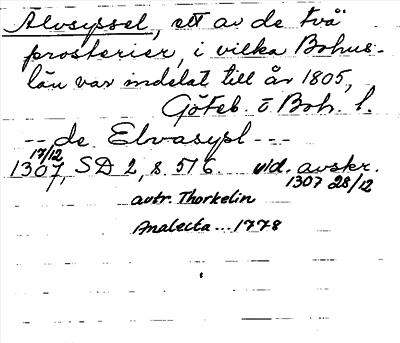 Älvsyssel, ett av de två
prosterier, i vilka Bohus-
län var indelat till år 1805,
Göteb. o Boh. l.
-- de Elvasysl ---
17/12
1307, SD 2, s. 516. vid. avskr.
1307 28/12
avtr. Thorkelin
Analecta ... 1778